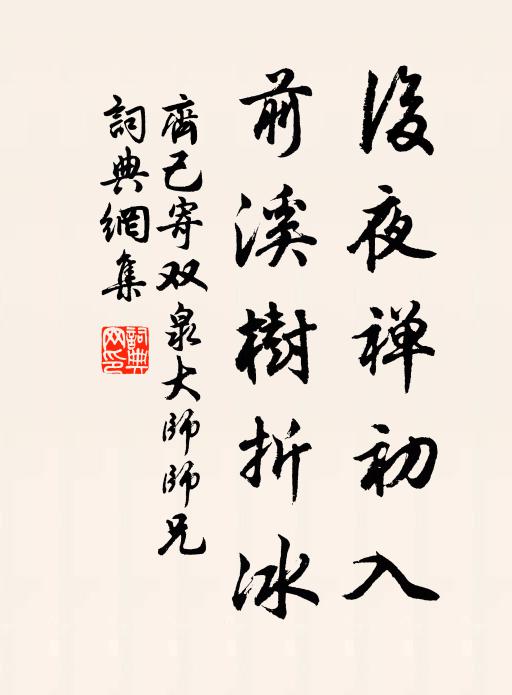 後夜禅初入
前溪樹折冰
齊己寄双泉大師師兄
詞典網集
詞典網印